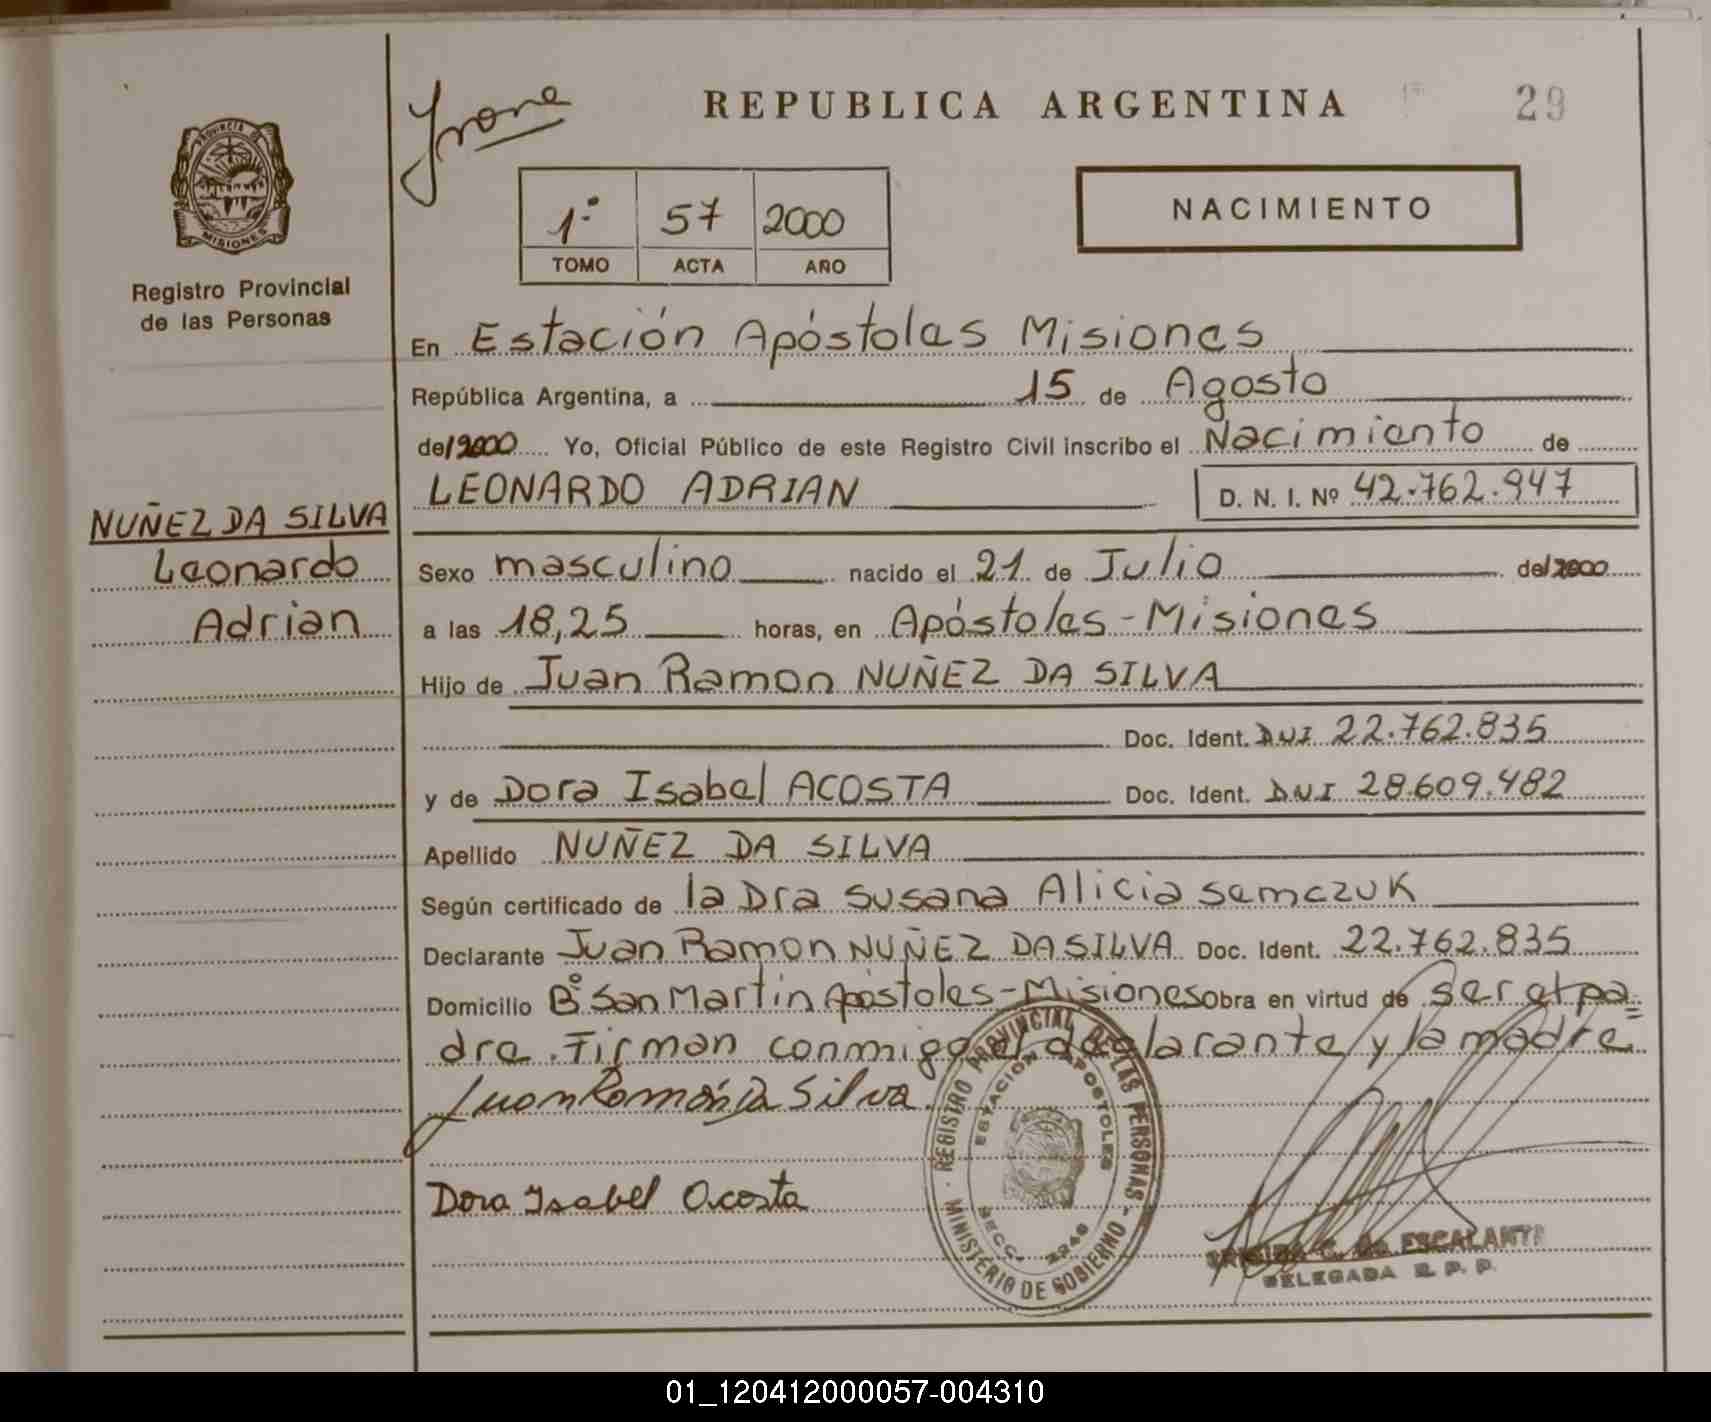 REPUBLICA ARGENTINA
29
Registro Provincial
de las Personas
PROVINCIA DE
MISIONES
1º 57 2000
TOMO ACTA AÑO
NACIMIENTO
En Estación Apóstoles Misiones
República Argentina, a 15 de Agosto
de 2000 Yo, Oficial Público de este Registro Civil inscribo el Nacimiento de
LEONARDO ADRIAN D. N. I. Nº 42.762.947
NUÑEZ DA SILVA
Leonardo
Adrian
Sexo masculino nacido el 21 de Julio de 2000
a las 18,25 horas, en Apóstoles - Misiones
Hijo de Juan Ramon NUÑEZ DA SILVA
Doc. Ident. DNI 22.762.835
y de Dora Isabel ACOSTA Doc. Ident. DNI 28.609.482
Apellido NUÑEZ DA SILVA
Según certificado de la Dra Susana Alicia Semczuk
Declarante Juan Ramon NUÑEZ DA SILVA Doc. Ident. 22.762.835
Domicilio Bº San Martin Apóstoles - Misiones Obra en virtud de ser el pa=
dre. Firman conmigo el declarante y la madre
Juan Ramón Da Silva
Dora Isabel Acosta
REGISTRO PROVINCIAL DE LAS PERSONAS
ESTACION APOSTOLES
SECC. 2246
MINISTERIO DE GOBIERNO
C. de ESCALANTE
DELEGADA R. P. P.
01_120412000057-004310